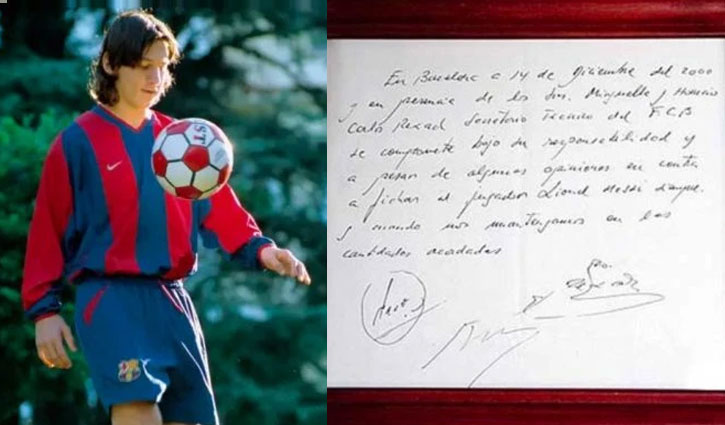 En Barcelona a 14 de Diciembre del 2000
y en presencia de los Srs. Minguella y Horacio
Carlo Rexach Secretario Tecnico del F.C.B
se compromete bajo su responsabilidad y
a pesar de algunas opiniones en contra
a fichar al jugador Lionel Messi siempre
y cuando nos mantengamos en las
cantidades acordadas
ST